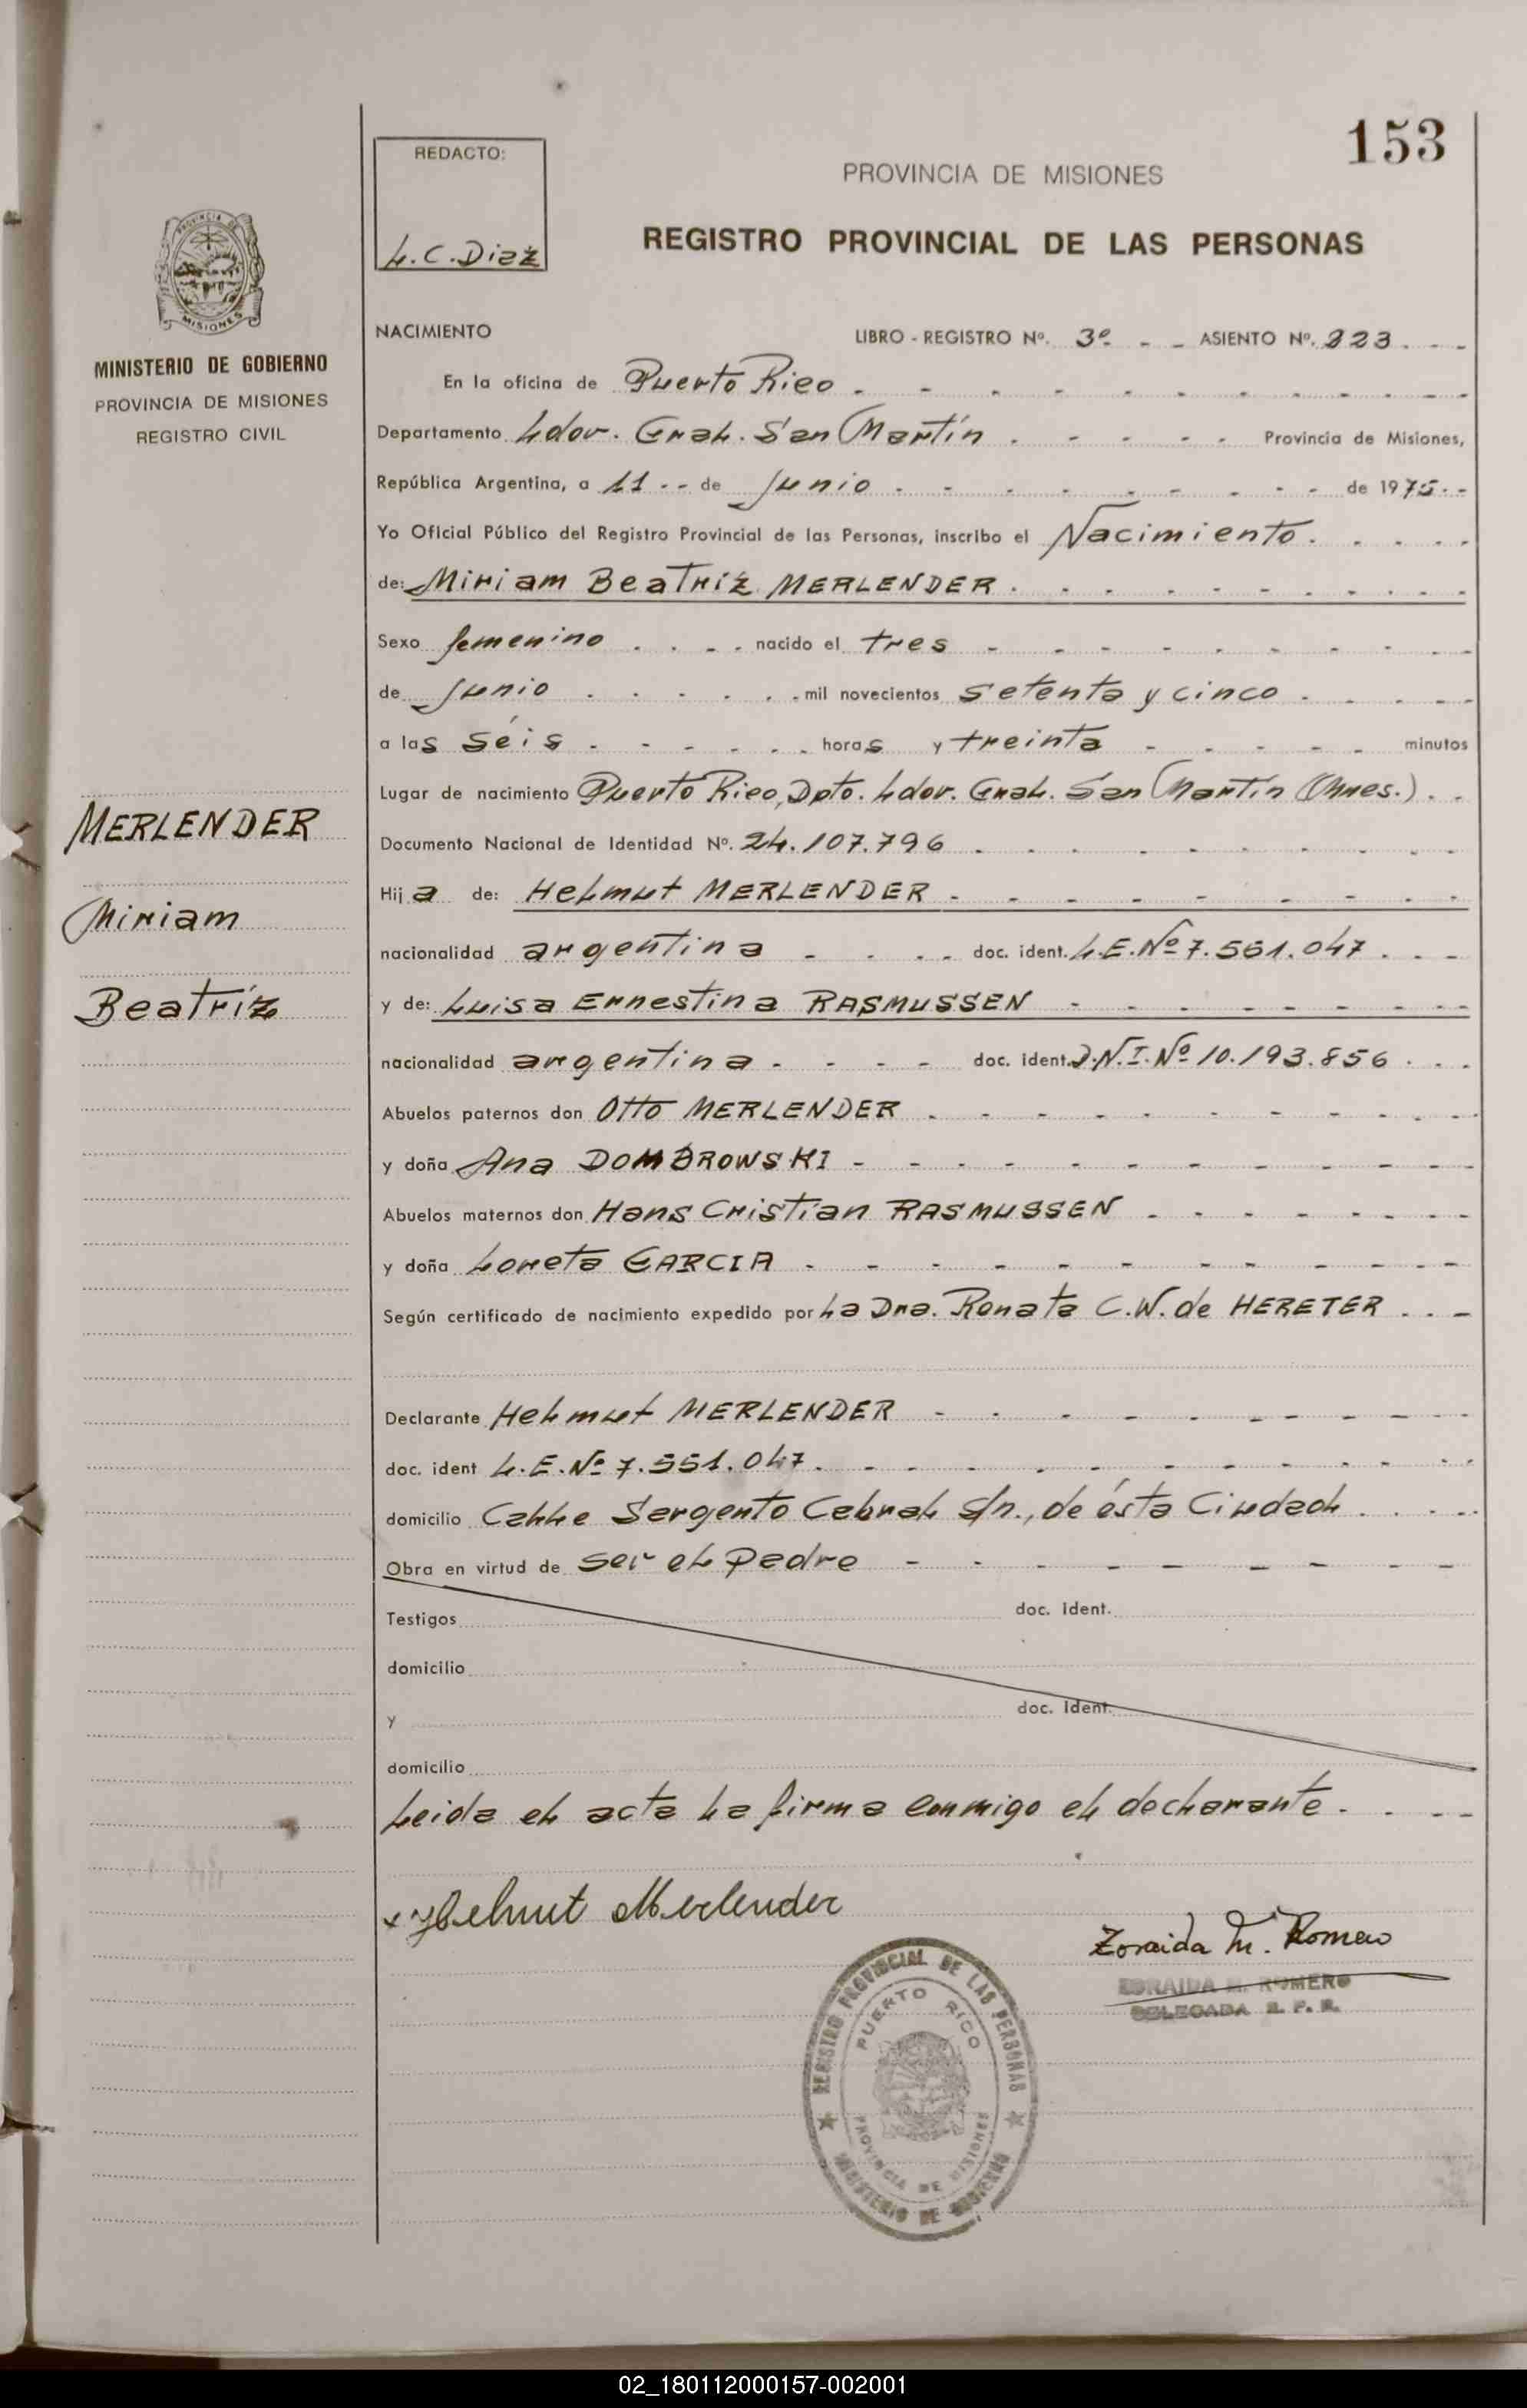 153
REDACTO:
L.C. Diaz
PROVINCIA DE MISIONES
REGISTRO PROVINCIAL DE LAS PERSONAS
PROVINCIA DE
MISIONES
MINISTERIO DE GOBIERNO
PROVINCIA DE MISIONES
REGISTRO CIVIL
NACIMIENTO LIBRO - REGISTRO Nº. 3º - - ASIENTO Nº. 323 . - -
En la oficina de Puerto Rico
Departamento Ldor. Gral. San Martín Provincia de Misiones,
República Argentina, a 11 - - de Junio de 1975 - -
Yo Oficial Público del Registro Provincial de las Personas, inscribo el Nacimiento.
de: Miriam Beatríz MERLENDER
Sexo femenino nacido el tres
de Junio mil novecientos setenta y cinco
a las séis horas y treinta minutos
Lugar de nacimiento Puerto Rico, Dpto. Ldor. Gral. San Martín (Mnes.)
Documento Nacional de Identidad Nº. 24.107.796
Hija de: Helmut MERLENDER
nacionalidad argentina doc. ident. L.E. Nº 7.561.047
y de: Luisa Ernestina RASMUSSEN
nacionalidad argentina doc. ident. D.N.I. Nº 10.193.856
Abuelos paternos don Otto MERLENDER
y doña Ana DOMBROWSKI
Abuelos maternos don Hans Cristian RASMUSSEN
y doña Loreta GARCIA
Según certificado de nacimiento expedido por La Dra. Renata C.W. de HERETER
Declarante Helmut MERLENDER
doc. ident L.E. Nº 7.551.047
domicilio Calle Sargento Cabral s/n., de ésta Ciudad
Obra en virtud de ser el padre
Testigos doc. ident.
domicilio
y doc. ident.
domicilio
Leida el acta la firma conmigo el declarante.
x Helmut Merlender
Zoraida M. Romero
ZORAIDA M. ROMERO
DELEGADA R. P. P.
REGISTRO PROVINCIAL DE LAS PERSONAS
PUERTO RICO
PROVINCIA DE MISIONES
MINISTERIO DE GOBIERNO
MERLENDER
Miriam
Beatríz
02_180112000157-002001